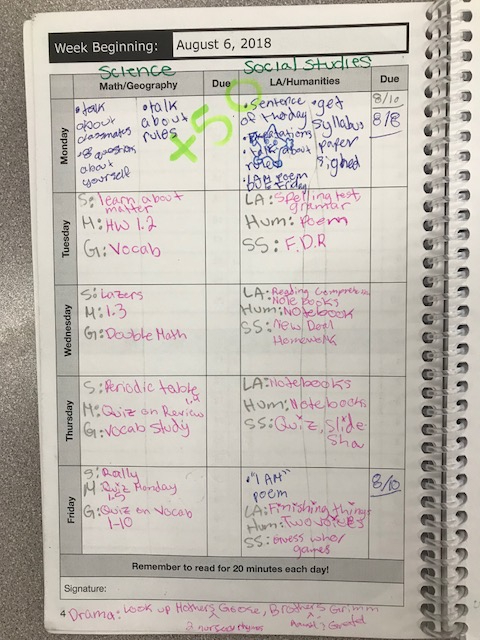 Week Beginning: August 6, 2018
Science
Social Studies
Math/Geography
Due
LA/Humanities
Due
+50
Monday
• talk
about
classmates
about
yourself
• talk
about
rules
• Sentence
of the day
• talk about
rules
• I AM Poem
Due Friday
• get
Syllabus
paper
signed
8/10
8/8
Tuesday
S: learn about
matter
M: HW 1.2
G: Vocab
LA: Spelling test
grammar
Hum: Poem
SS: F.D.R
Wednesday
S: Lazers
M: 1.3
G: Double Math
LA: Reading Comprehension
Notebooks
Hum: Notebook
SS: New Deal
Homework
Thursday
S: Periodic table
M: Quiz on Review
G: Vocab Study
LA: Notebooks
Hum: Notebooks
SS: Quiz, Slide
Sho
Friday
S: Rally
M: Quiz Monday
1-5
G: Quiz on Vocab
1-10
• "I AM"
poem
LA: Finishing things
Hum: Two voices
SS: Guess who/
games
8/10
Remember to read for 20 minutes each day!
Signature:
4 Drama: Look up Mothers Goose, Brothers Grimm
2 nursery rhymes